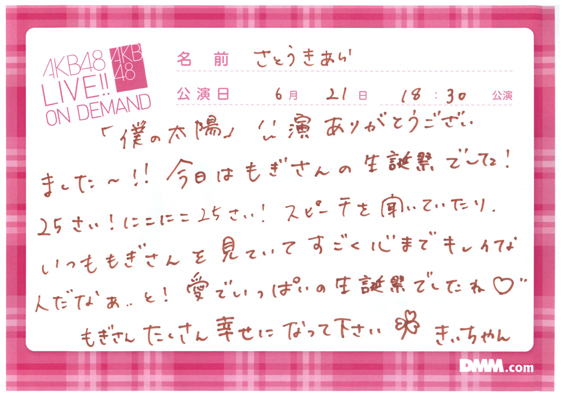 AKB48
LIVE!!
ON DEMAND
AKB
48
名前 さとうきあら
公演日 6月 21日 18:30 公演
「僕の太陽」公演ありがとうござい
ました〜!! 今日はもぎさんの生誕祭でしてね!
25さい!にこにこ25さい! スピーチを聞いていたり、
いつももぎさんを見ていてすごく心までキレイな
人だなぁ..と! 愛でいっぱいの生誕祭でしたね♡"
もぎさんたくさん幸せになって下さい きぃちゃん
DMM.com